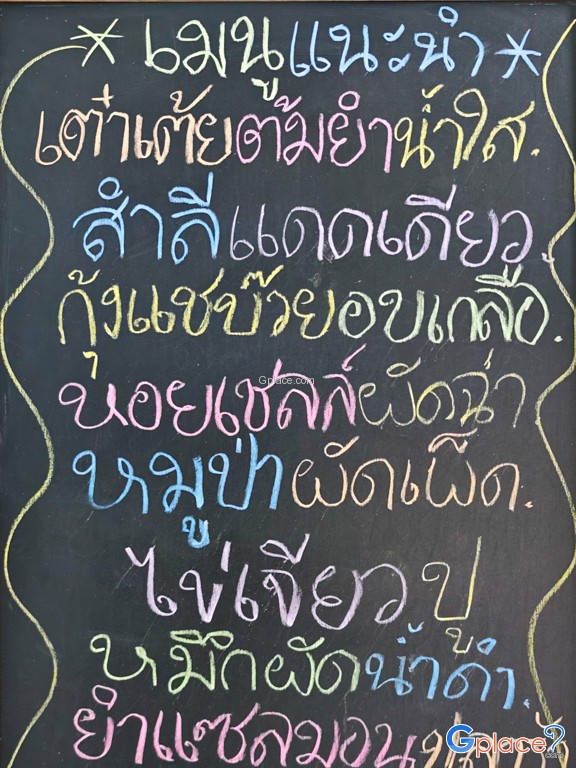 * เมนูแนะนำ *
เต๋าเต้ยต้มยำน้ำใส.
สำลีแดดเดียว.
กุ้งแชบ๊วยอบเกลือ.
หอยเชลล์ผัดฉ่า
หมูป่าผัดเผ็ด.
ไข่เจียวปู
หมึกผัดน้ำดำ.
ยำแซลมอน
Gplace.com
Gplace
.com